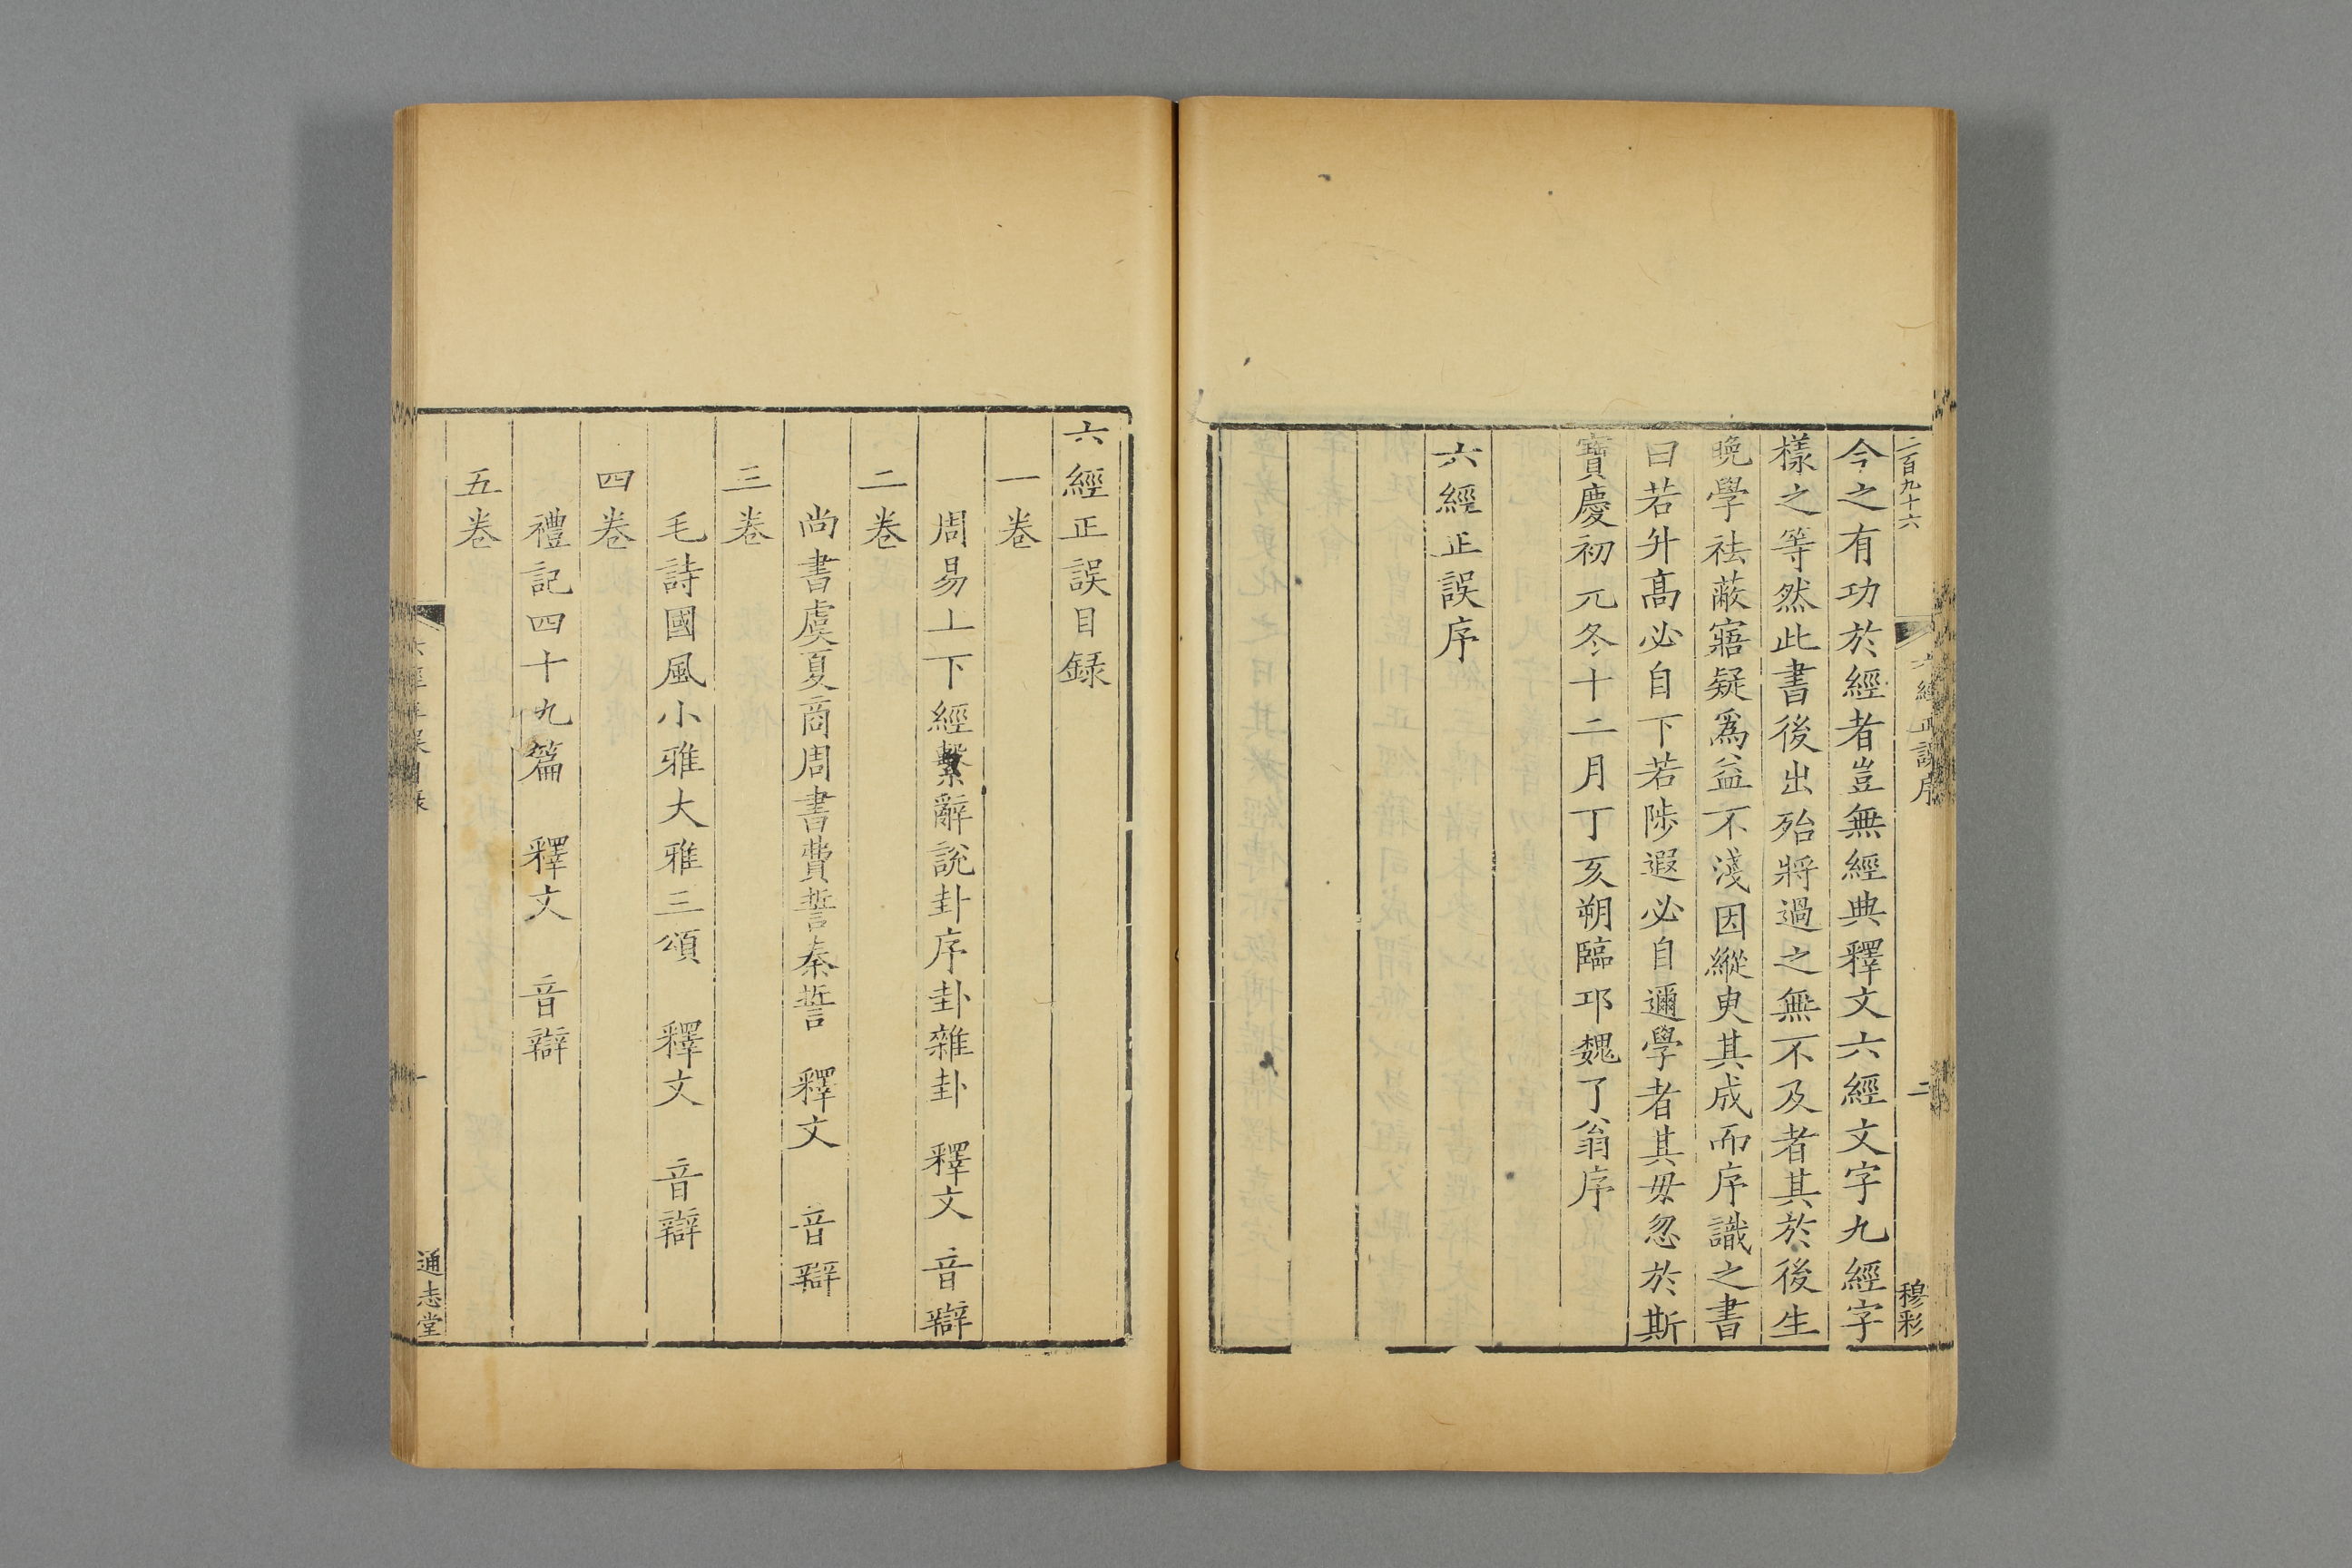 二百九十六
六經正誤序
二
穆彩
今之有功於經者豈無經典釋文六經文字九經字
樣之等然此書後出殆將過之無不及者其於後生
晚學祛蔽寤疑爲益不淺因縱臾其成而序識之書
曰若升髙必自下若陟遐必自邇學者其毋忽於斯
寶慶初元冬十二月丁亥朔臨邛魏了翁序
六經正誤序
六經正誤目録
一卷
周易上下經繫辭說卦序卦雜卦 釋文 音辯
二卷
尚書虞夏商周書費誓秦誓 釋文 音辯
三卷
毛詩國風小雅大雅三頌 釋文 音辯
四卷
禮記四十九篇 釋文 音辯
五卷
六經正誤目録
一
通志堂